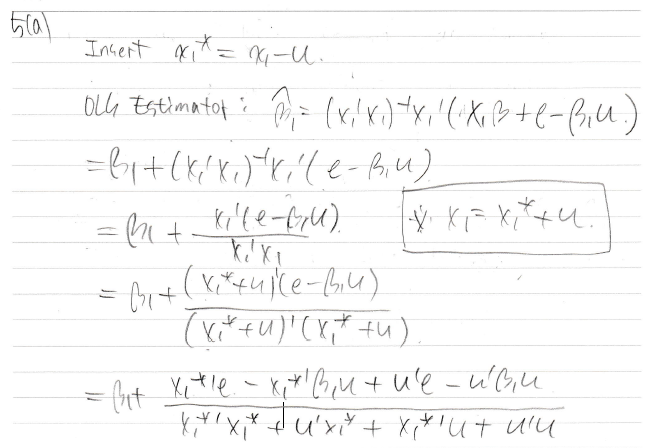 5(a)
Insert x₁* = x₁ - u.
OLS Estimator: β̂₁ = (x₁'x₁)⁻¹x₁'(x₁β + e - β₁u.)
= β₁ + (x₁'x₁)⁻¹x₁'(e - β₁u)
= β₁ + x₁'(e - β₁u) / x₁'x₁
∵ x₁ = x₁* + u.
= β₁ + (x₁* + u)'(e - β₁u) / (x₁* + u)'(x₁* + u)
= β₁ + x₁*'e - x₁*'β₁u + u'e - u'β₁u / x₁*'x₁* + u'x₁* + x₁*'u + u'u